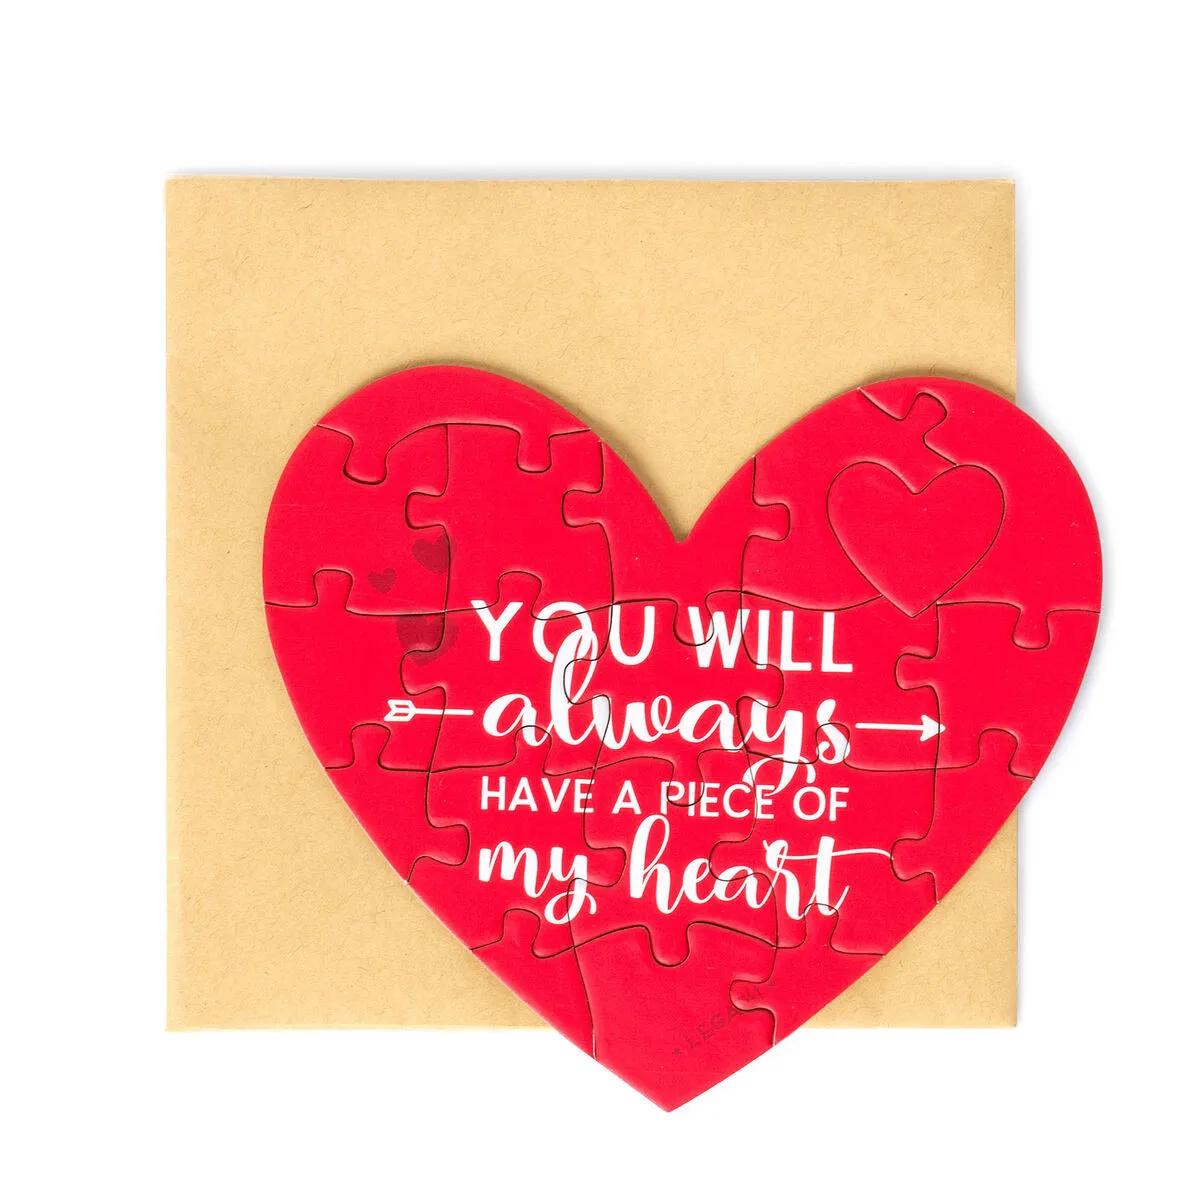 YOU WILL
always
HAVE A PIECE OF
my heart
* LEGAMI *